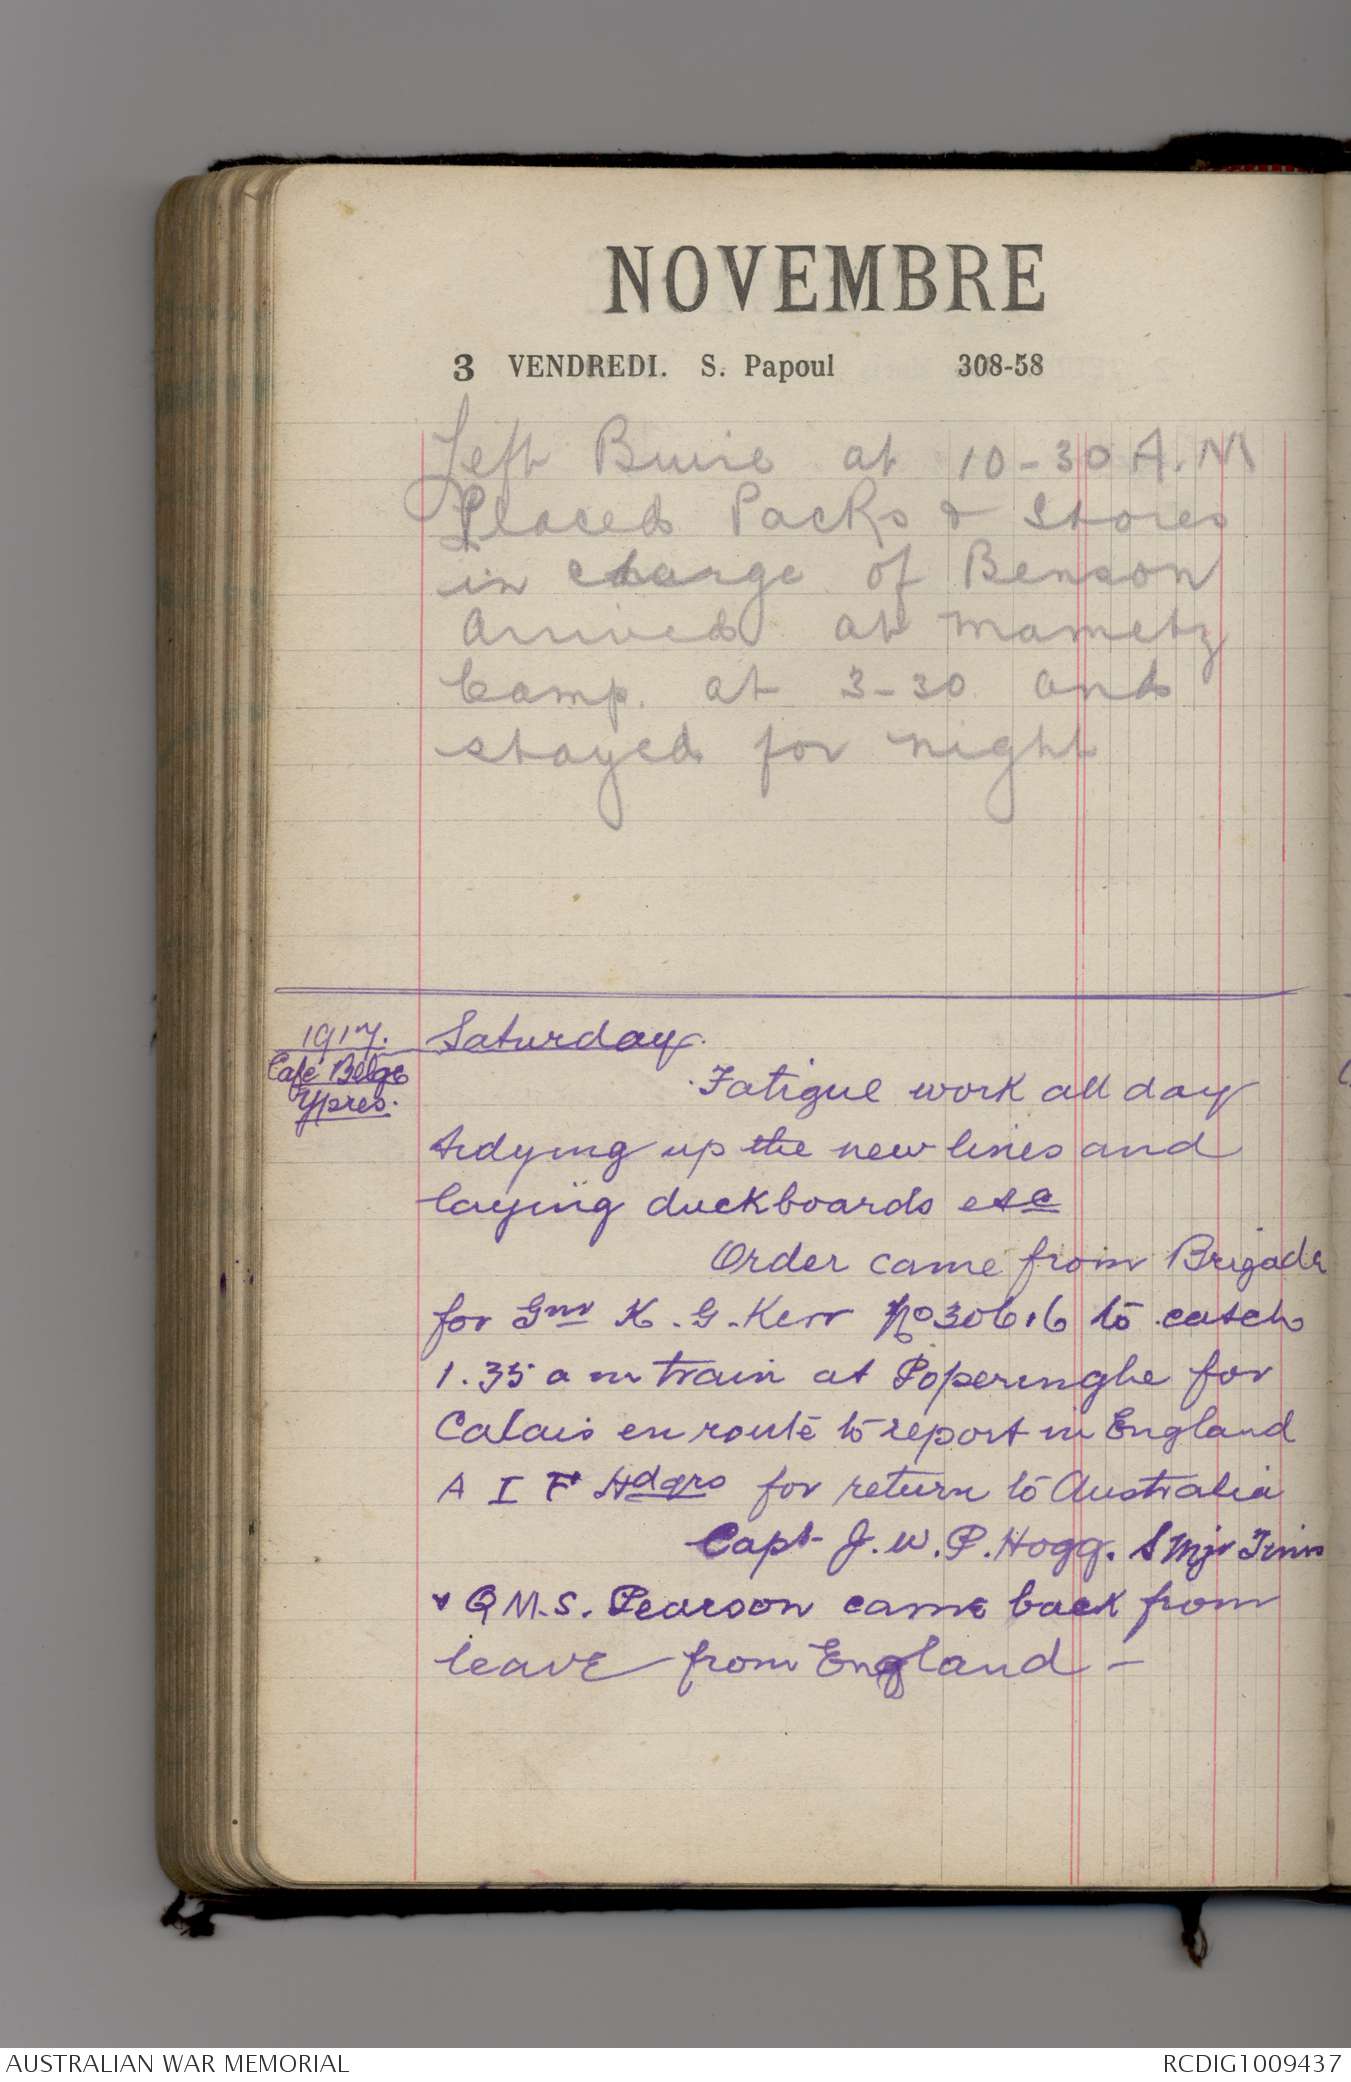 NOVEMBRE
3 VENDREDI. S. Papoul 308-58
Left Buire at 10-30 A.M
Placed Packs & Stores
in charge of Benson
Arrived at Mametz
Camp. at 3-30 and
stayed for night
1917. Saturday.
Café Belge
Ypres.
Fatigue work all day
tidying up the new lines and
laying duckboards etc
Order came from Brigade
for Gnr K. G. Kerr No 30616 to catch
1.35 a m train at Poperinghe for
Calais en route to report in England
A I F Hdqrs for return to Australia
Capt J. W. P. Hogg. S Mjr
& Q M.S. Pearson came back from
leave from England —
AUSTRALIAN WAR MEMORIAL RCDIG1009437